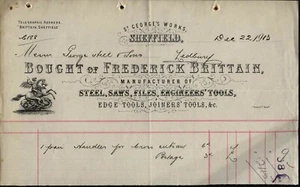 TELEGRAPHIC ADDRESS,
"BRITTAIN, SHEFFIELD."
ST GEORGE'S WORKS,
SHEFFIELD,
Dec 22 1913
Messrs George & Sons
Ledbury
BOUGHT OF FREDERICK BRITTAIN,
MANUFACTURER OF
STEEL, SAWS, FILES, ENGINEERS' TOOLS,
EDGE TOOLS, JOINERS' TOOLS, &c.
1 pair Handles for Cross cut Saw
Postage